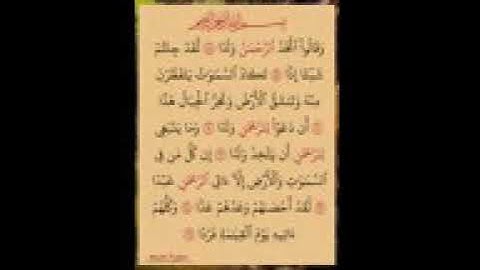 بسم الله الرحمن الرحيم
وَقَالُوا۟ ٱتَّخَذَ ٱلرَّحْمَـٰنُ وَلَدًا ۝ لَّقَدْ جِئْتُمْ
شَيْـًٔا إِدًّا ۝ تَكَادُ ٱلسَّمَـٰوَٰتُ يَتَفَطَّرْنَ
مِنْهُ وَتَنشَقُّ ٱلْأَرْضُ وَتَخِرُّ ٱلْجِبَالُ هَدًّا
۝ أَن دَعَوْا۟ لِلرَّحْمَـٰنِ وَلَدًا ۝ وَمَا يَنۢبَغِى
لِلرَّحْمَـٰنِ أَن يَتَّخِذَ وَلَدًا ۝ إِن كُلُّ مَن فِى
ٱلسَّمَـٰوَٰتِ وَٱلْأَرْضِ إِلَّآ ءَاتِى ٱلرَّحْمَـٰنِ عَبْدًا
۝ لَّقَدْ أَحْصَىٰهُمْ وَعَدَّهُمْ عَدًّا ۝ وَكُلُّهُمْ
ءَاتِيهِ يَوْمَ ٱلْقِيَـٰمَةِ فَرْدًا ۝